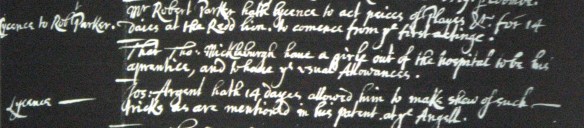 Lycence to Rot Parker.
Mr Robert Parker hath lycence to act peices of Playes &c for 14
Daies at the Redd lion. to comence from ye first actinge.
That Tho: Mickleburgh have a girle out of the hospital to be his
aprentice, and to have ye usual Allowances.
Lycence
Jos: Argent hath 14 dayes allowed him to make shew of such
tricks as are mentioned in his patent at ye Angell.